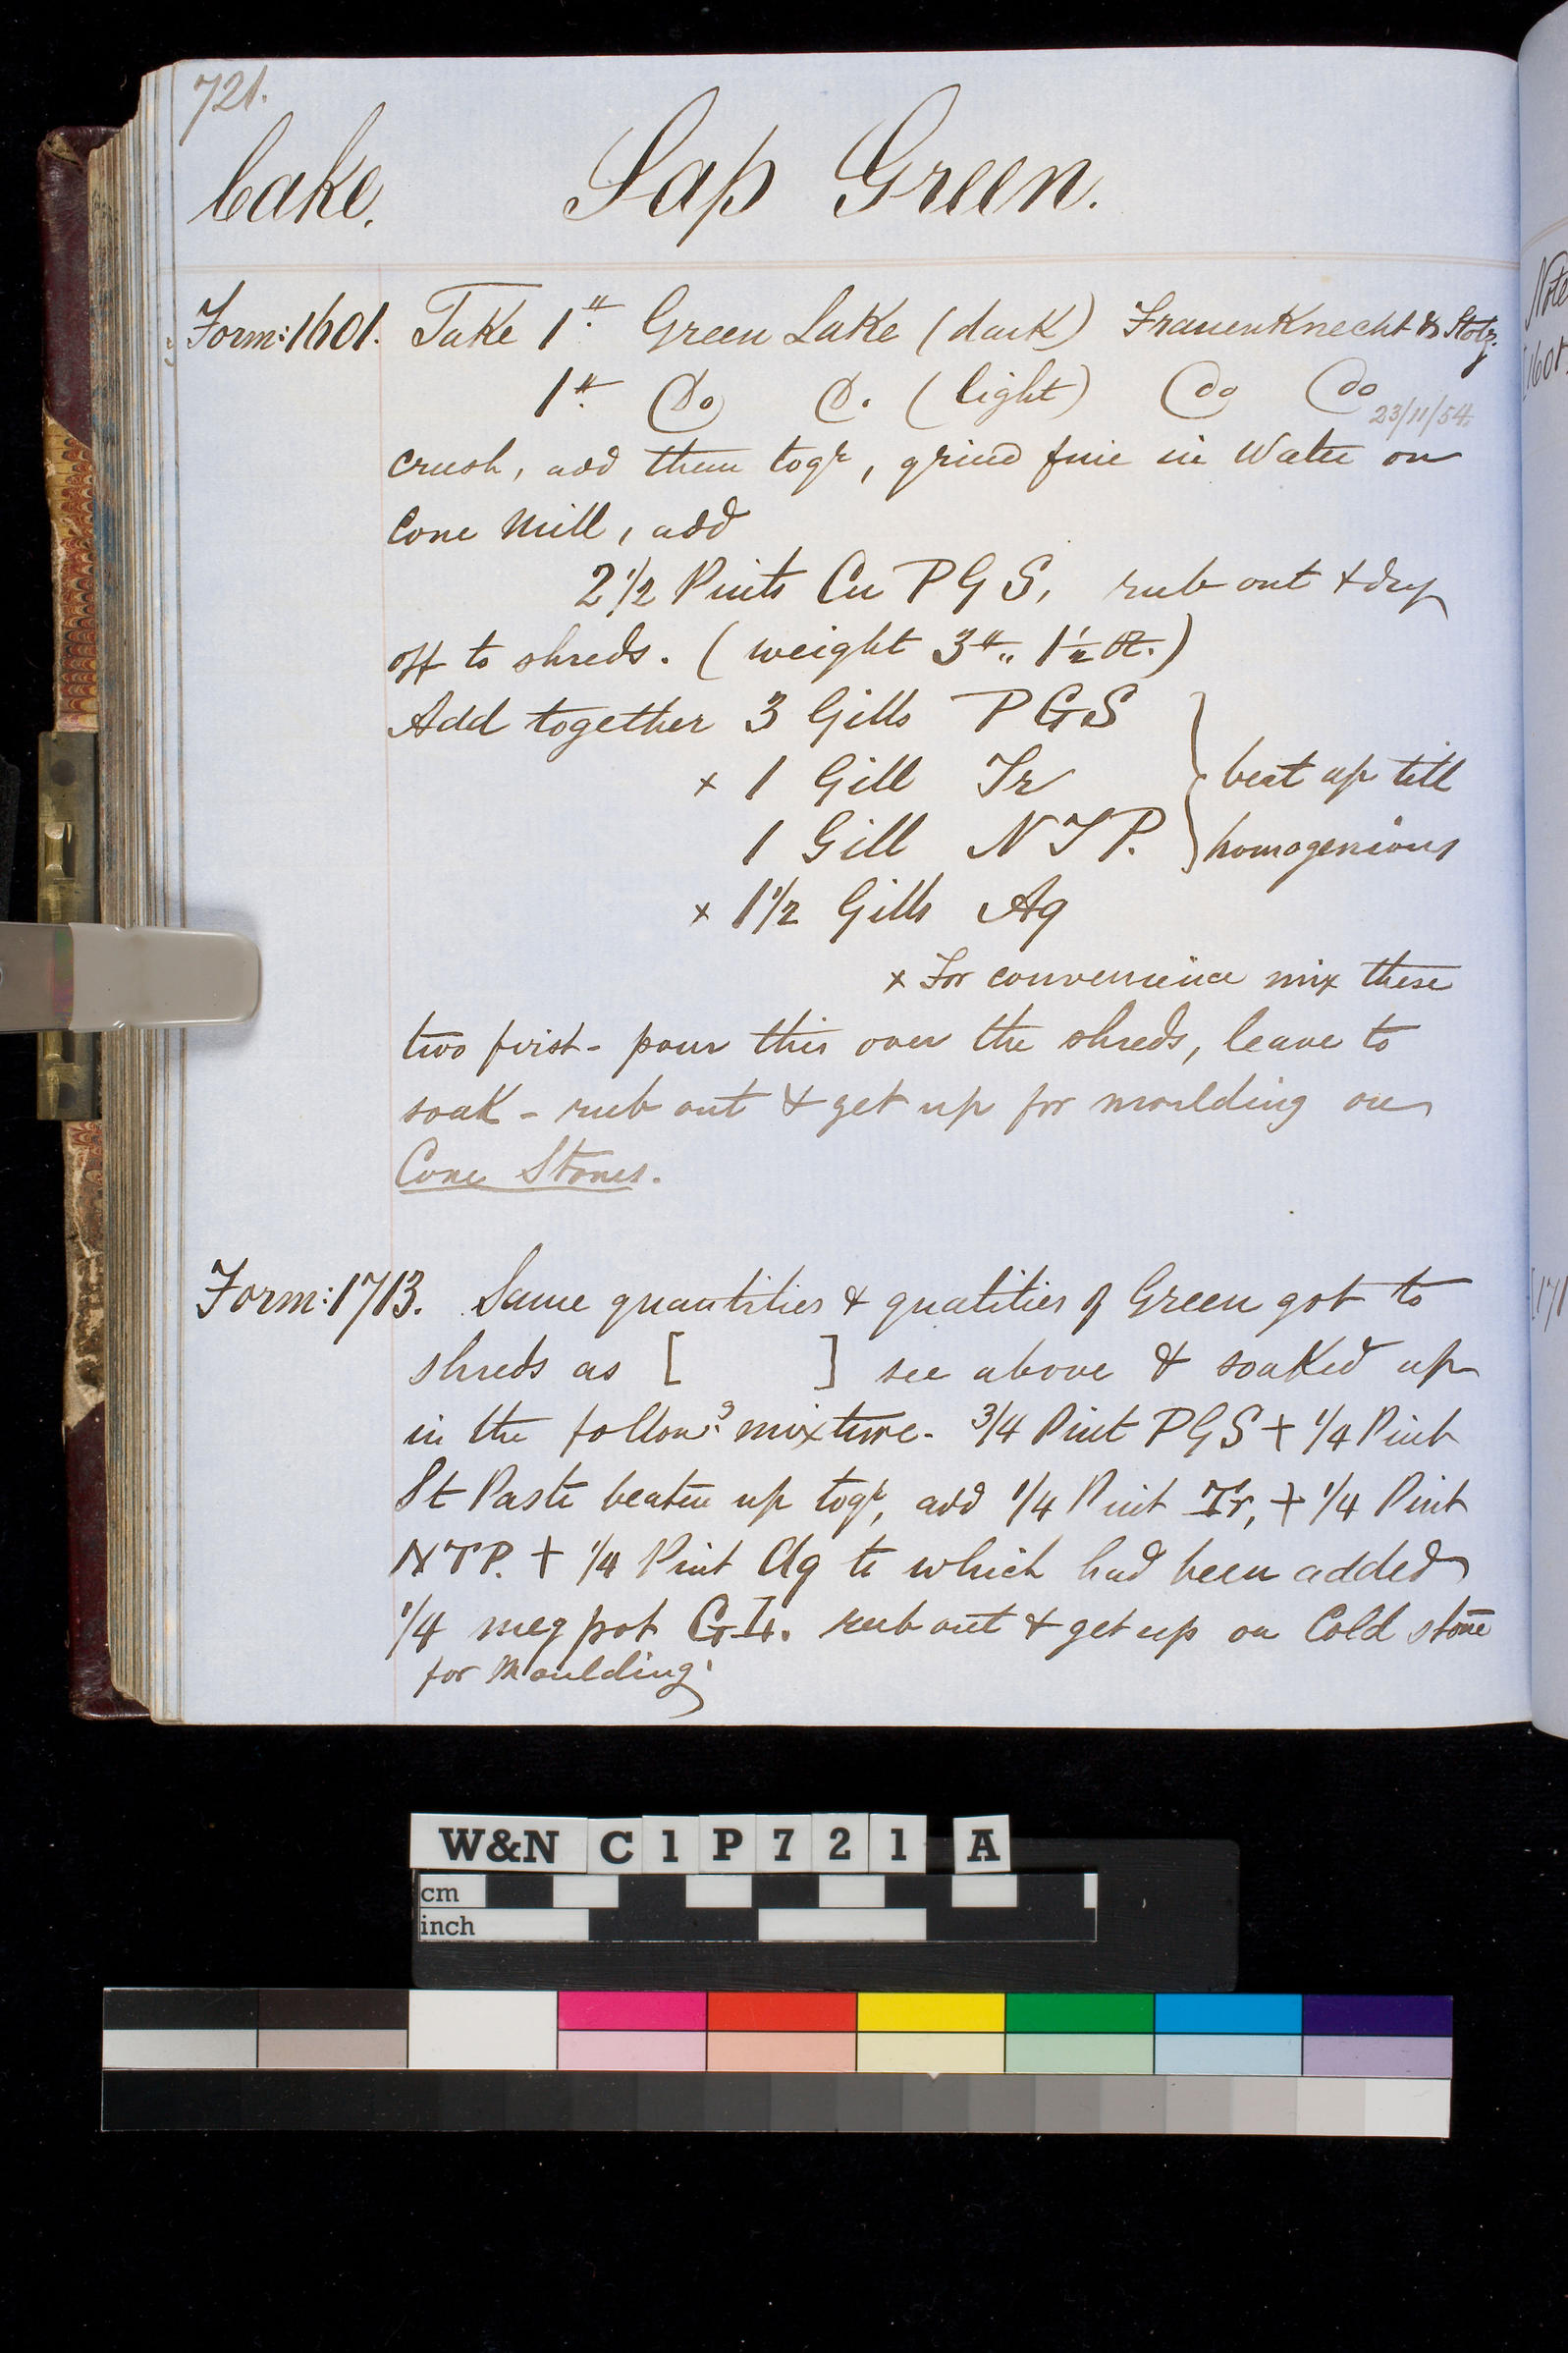 721.
Cake. Sap Green.
Form: 1601. Take 1 ℔. Green Lake (dark) Frauenknecht & Stotz.
1 ℔. Do Do. (light) Do Do
23/11/54.
crush, add them togr, grind fine in Water on
Cone Mill, add
2 1/2 Pints Cu P G S, rub out + dry
off to shreds. (weight 3 ℔ „ 1 1/2 oz.)
Add together 3 Gills P G S
x 1 Gill Tr beat up till
1 Gill N T P. homogenious
x 1 1/2 Gills Aq
x For convenience mix these
two first - pour this over the shreds, leave to
soak - rub out & get up for moulding on
Cone Stones.
Form: 1713. Same quantities & qualities of Green got to
shreds as [ ] see above & soaked up
in the follow.g mixture. 3/4 Pint P G S + 1/4 Pint
St Paste beaten up togr, add 1/4 Pint Tr, + 1/4 Pint
N T P. + 1/4 Pint Aq to which had been added
1/4 meg pot G It. rub out & get up on Cold stone
for Moulding.
Note
[1601
[171
W&N C1P721 A
cm
inch